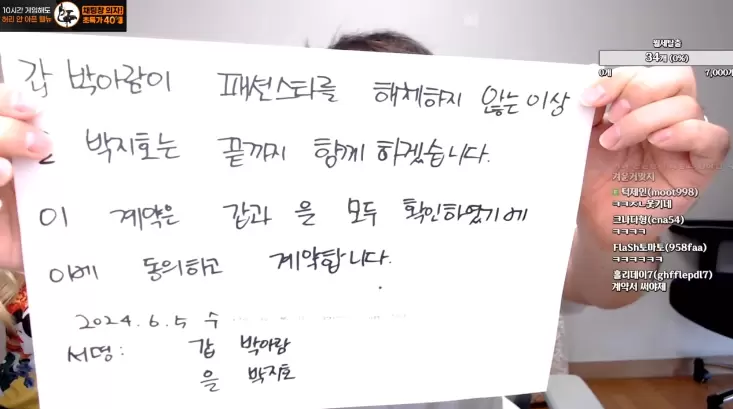 10시간 게임해도
허리 안 아픈 헬뉴
채팅창 의자!
초특가 40%
갑 박아람이 패션스타를 해체하지 않는 이상
을 박지호는 끝까지 함께 하겠습니다.
이 계약은 갑과 을 모두 확인하였기에
이에 동의하고 계약합니다.
2024.6.5 수
서명: 갑 박아람
을 박지호
월세탈출
34개 (0%)
0개 7,000개
겨운거맞지
턱제인(moot998)
ㅋㅋㅈㄴ웃기네
크나더형(cna54)
ㅋㅋㅋㅋ
FlaSh토마토(958faa)
ㅋㅋㅋㅋㅋㅋ
홀리데이7(ghfflepdl7)
계약서 써야제